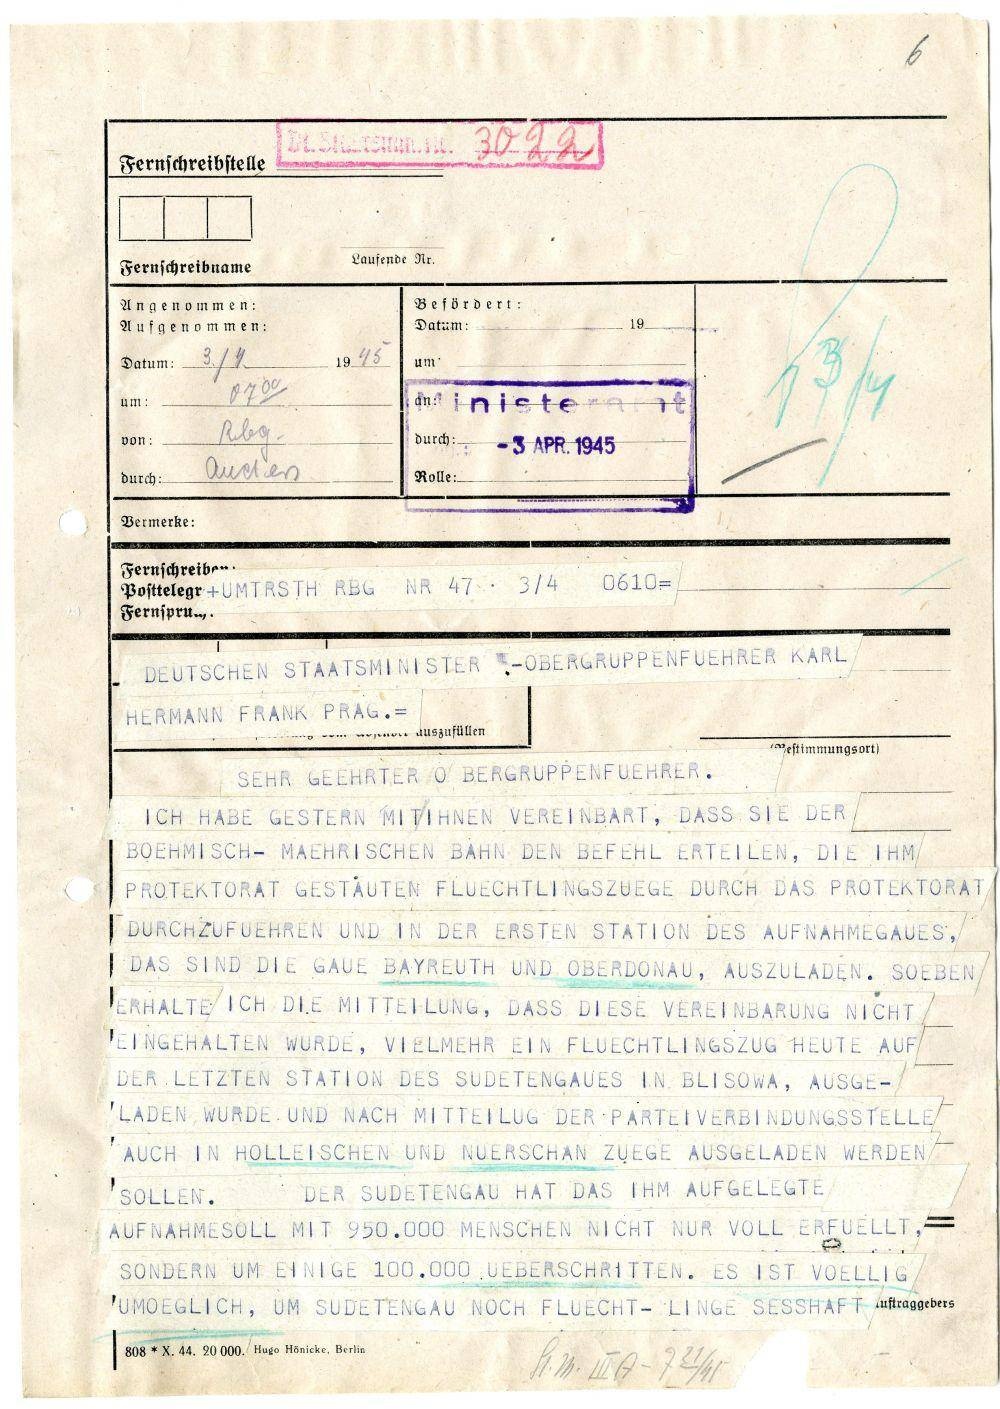 6
3022
Fernschreibstelle
Fernschreibname
Laufende Nr.
Angenommen:
Aufgenommen:
Datum: 3./4. 1945
um: 07 00
von: Rbg.
durch:
Befördert:
Datum: 19
um
an:
durch:
Rolle:
Ministeramt
-3 APR. 1945
3/4
Vermerke:
Posttelegr
+UMTRSTH RBG NR 47 · 3/4 0610=
DEUTSCHEN STAATSMINISTER -OBERGRUPPENFUEHRER KARL
HERMANN FRANK PRAG.=
auszufüllen
(Bestimmungsort)
SEHR GEEHRTER O BERGRUPPENFUEHRER.
ICH HABE GESTERN MIT/IHNEN VEREINBART, DASS SIE DER
BOEHMISCH- MAEHRISCHEN BAHN DEN BEFEHL ERTEILEN, DIE IHM
PROTEKTORAT GESTAUTEN FLUECHTLINGSZUEGE DURCH DAS PROTEKTORAT
DURCHZUFUEHREN UND IN DER ERSTEN STATION DES AUFNAHMEGAUES,
DAS SIND DIE GAUE BAYREUTH UND OBERDONAU, AUSZULADEN. SOEBEN
ERHALTE ICH DIE MITTEILUNG, DASS DIESE VEREINBARUNG NICHT
EINGEHALTEN WURDE, VIELMEHR EIN FLUECHTLINGSZUG HEUTE AUF
DER LETZTEN STATION DES SUDETENGAUES IN BLISOWA, AUSGE-
LADEN WURDE UND NACH MITTEILUG DER PARTEIVERBINDUNGSSTELLE
AUCH IN HOLLEISCHEN UND NUERSCHAN ZUEGE AUSGELADEN WERDEN
SOLLEN. DER SUDETENGAU HAT DAS IHM AUFGELEGTE
AUFNAHMESOLL MIT 950.000 MENSCHEN NICHT NUR VOLL ERFUELLT,
SONDERN UM EINIGE 100.000 UEBERSCHRITTEN. ES IST VOELLIG
UMOEGLICH, UM SUDETENGAU NOCH FLUECHT- LINGE SESSHAFT
uftraggebers
808 * X. 44. 20 000. Hugo Hönicke, Berlin